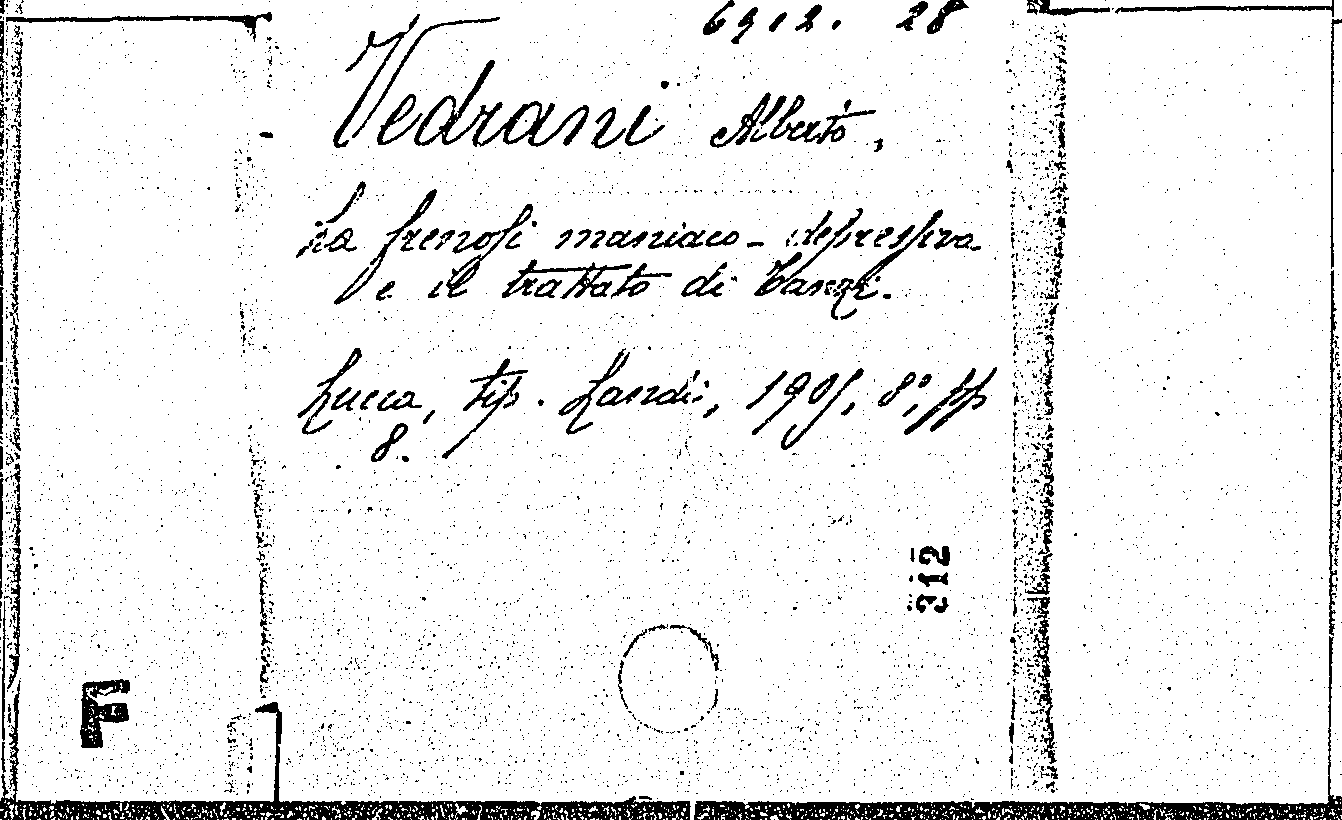 6912. 28
Vedrani Alberto,
La frenosi maniaco-depressiva
e il trattato di Tanzi.
Lucca, tip. Landi, 1905, 8°, pp
8.
312
F